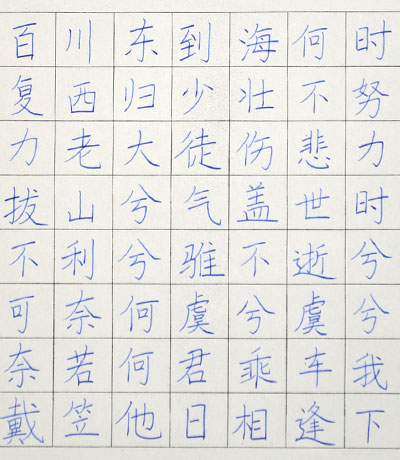 百川东到海何时
复西归少壮不努
力老大徒伤悲力
拔山兮气盖世时
不利兮骓不逝兮
可奈何虞兮虞兮
奈若何君乘车我
戴笠他日相逢下